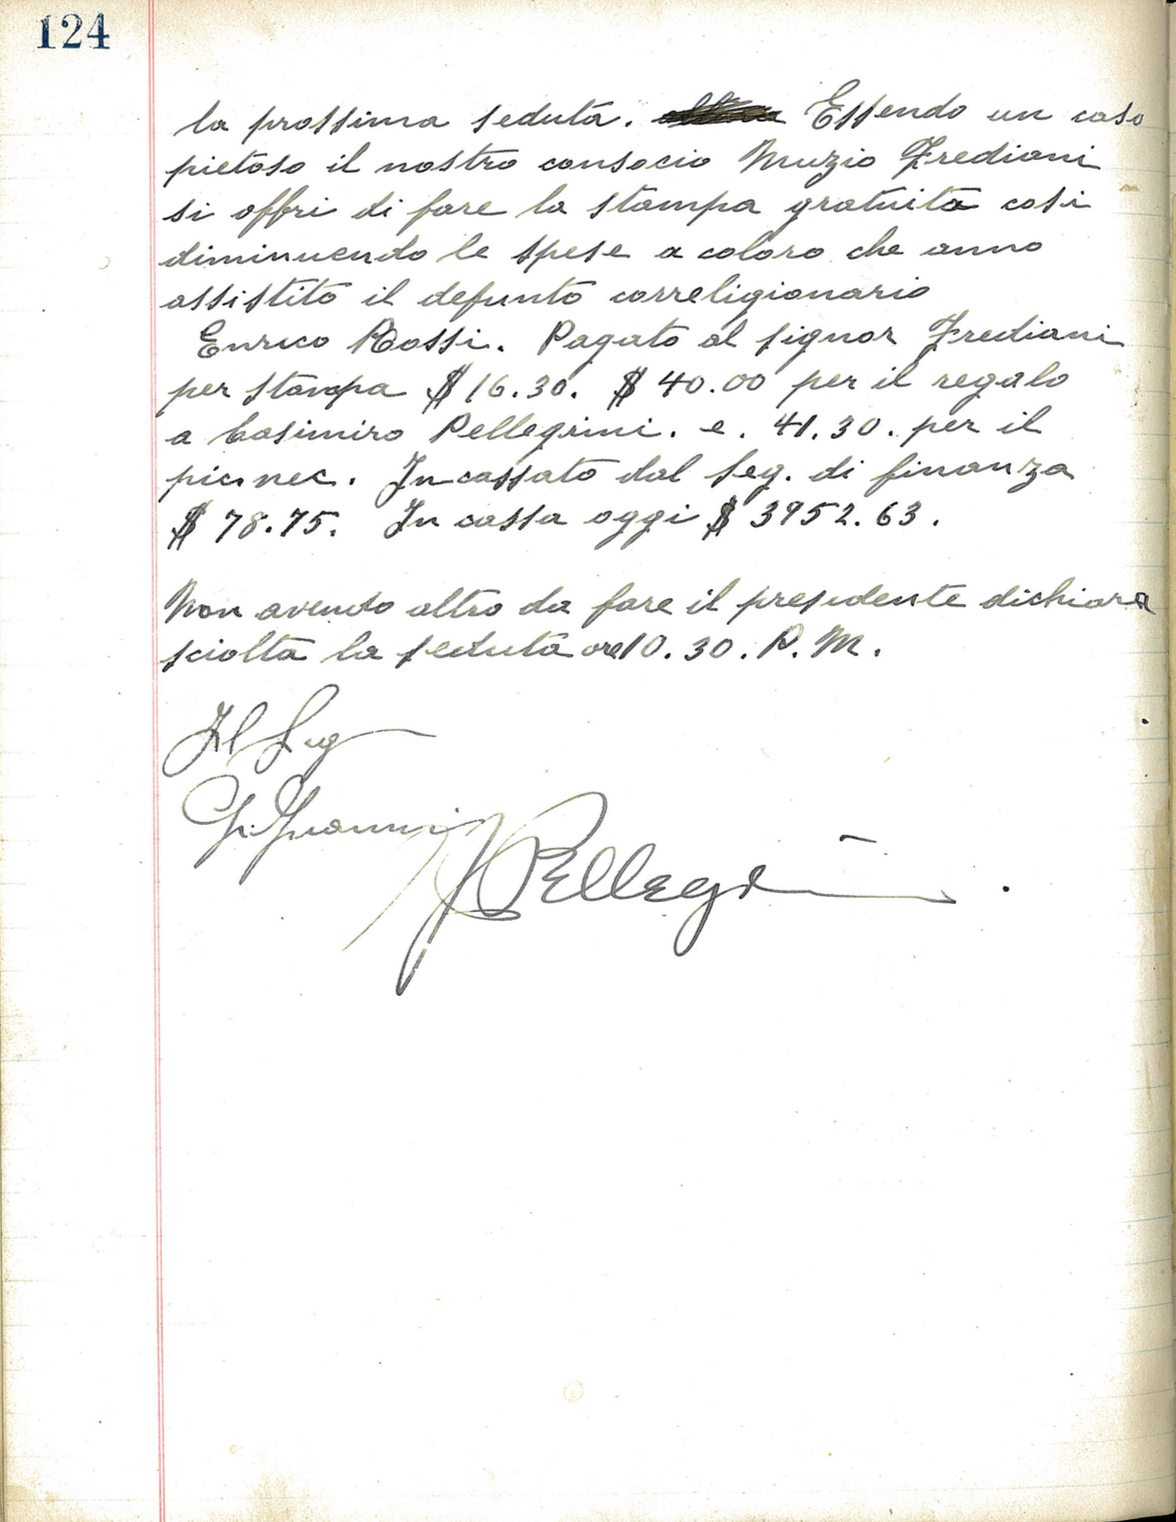 124
la prossima seduta. Essendo un caso
pietoso il nostro consocio Muzio Frediani
si offri di fare la stampa gratuita cosi
diminuendo le spese a coloro che anno
assistito il defunto correligionario
Enrico Rossi. Pagato al signor Frediani
per stampa $16.30. $40.00 per il regalo
a Casimiro Pellegrini. e. 41.30. per il
picnec. Incassato dal seg. di finanza
$78.75. In cassa oggi $3952.63.
Non avendo altro da fare il presidente dichiara
sciolta la seduta ore 10.30. P.M.
Il Seg
G. Giannini
Pellegrini